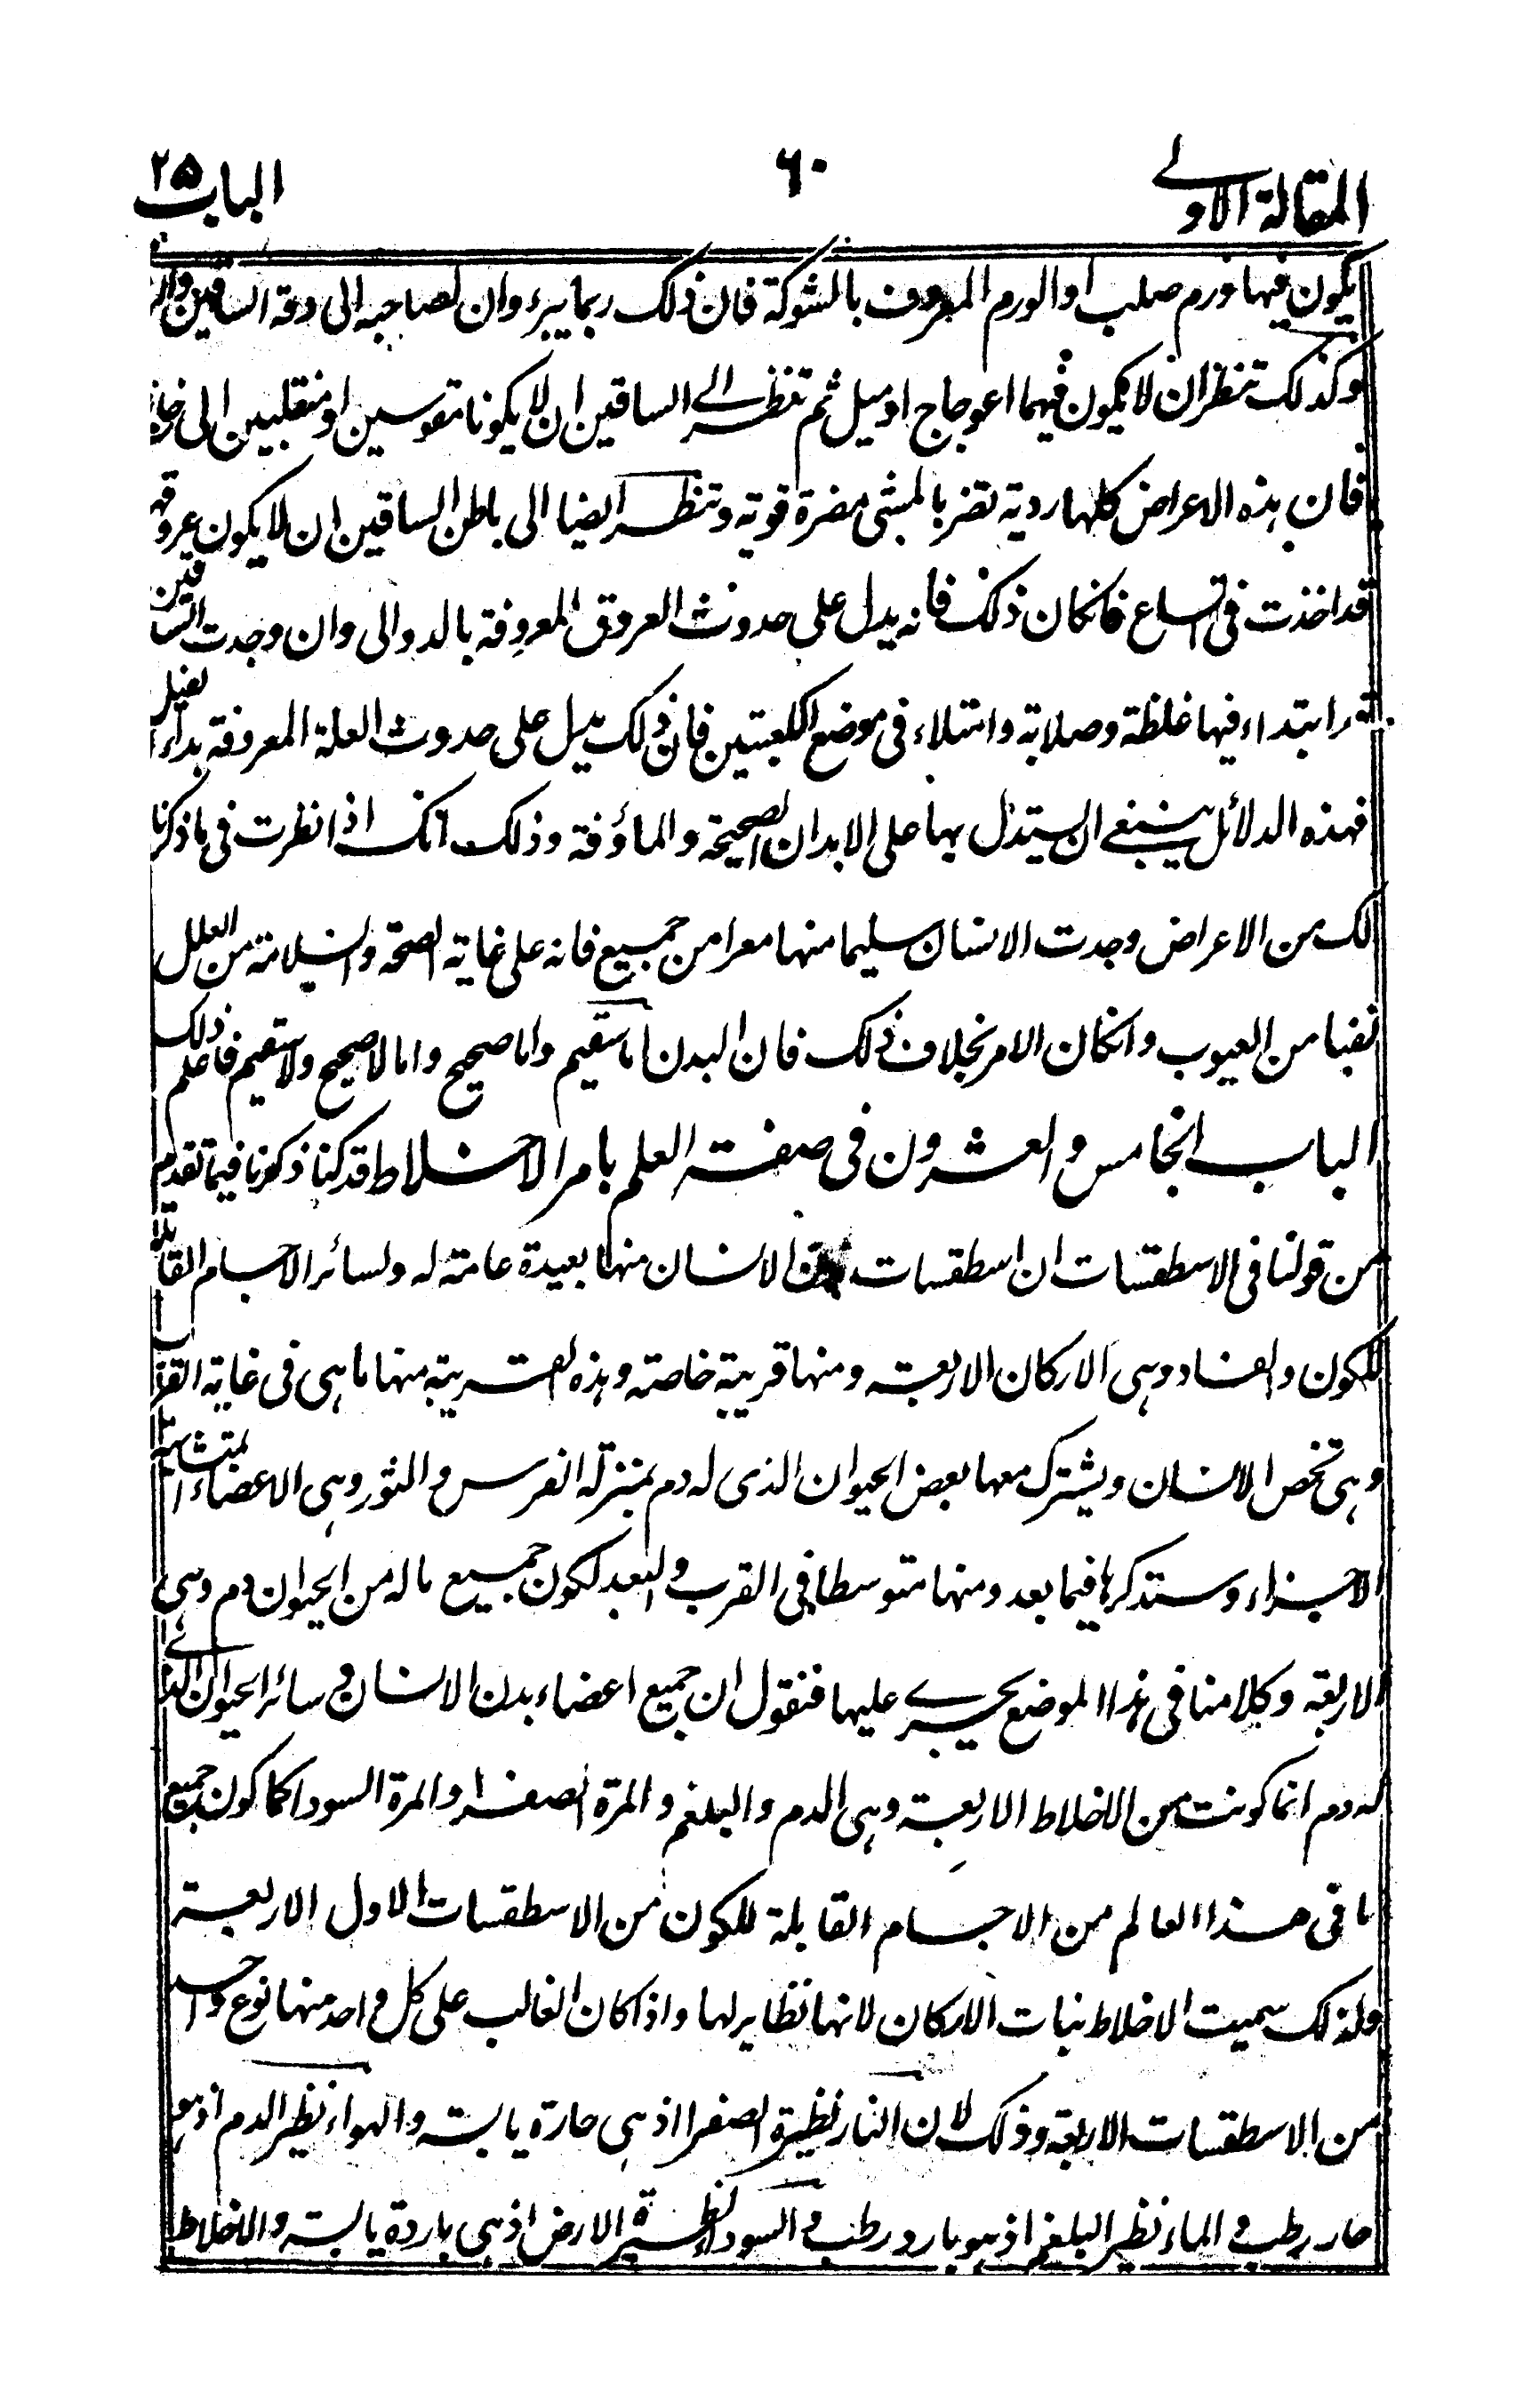 المقالة الاولے ٦٠ الباب ٢٥
يكون فيها ورم صلب او الورم المعروف بالشوكة فان ذلك ربما يبرء وان لصاحبه الى دقة الساقين
وكذلك تنظر ان لا يكون فيهما اعوجاج او ميل ثم تنظر الے الساقين ان لا يكونا متقوسين او منقلبين الى
فان هذه الاعراض كلها ردية تضر بالمشى مضرة قوية وتنظر ايضا الى باطن الساقين ان لا يكون عروقها
قد اخذت فى اتساع فانكان ذلك فانه يدل على حدوث العروق المعروفة بالدوالى وان وجدت الساقين
ابتداء فيها غلظة وصلابة وامتلاء فى موضع الكعبتين فان ذلك يدل على حدوث العلة المعروفة بداء الفيل
فهذه الدلائل ينبغے ان يستدل بها على الابدان الصحيحة والماؤفة وذلك انك اذا نظرت فى ما ذكرنا
لك من الاعراض وجدت الانسان سليما منها معرا من جميع فانه على غاية الصحة والسلامة من العلل
نقيا من العيوب وانكان الامر بخلاف ذلك فان البدن اما سقيم واما صحيح واما لا صحيح ولا سقيم فاعلم ذلك
الباب الخامس والعشرون فى صفة العلم بامر الاخلاط قد كنا ذكرنا فيما تقدم
من قولنا فى الاسطقسات ان اسطقسات بدن الانسان منها بعيدة عامة له ولسائر الاجسام القابلة
للكون والفساد وهى الاركان الاربعة ومنها قريبة خاصة وهذه القريبة منها ما هى فى غاية القرب
وهى تخص الانسان ويشترك معها بعض الحيوان الذى له دم بمنزلة الفرس والثور وهى الاعضاء المتشابهة
الاجزاء وستذكرها فيما بعد ومنها متوسطا فى القرب والبعد لكون جميع ماله من الحيوان دم وهى
الاربعة وكلامنا فى هذا الموضع يجرے عليها فنقول ان جميع اعضاء بدن الانسان و سائر الحيوان الذے
له دم انما كونت من الاخلاط الاربعة وهى الدم والبلغم والمرة الصفرا والمرة السودا كما كون جميع
ما فى هذا العالم من الاجسام القابلة للكون من الاسطقسات الاول الاربعة
ولذلك سميت الاخلاط بنات الاركان لانها نظاير لها واذا كان الغالب على كل واحد منها نوع واحد
من الاسطقسات الاربعة وذلك لان النار نظيرة الصفرا اذ هى حارة يابسة والهواء نظير الدم اذ هو
حار رطب و الماء نظير البلغم اذ هو بارد رطب و السودا نظيرة الارض اذ هى باردة يابسة والاخلاط